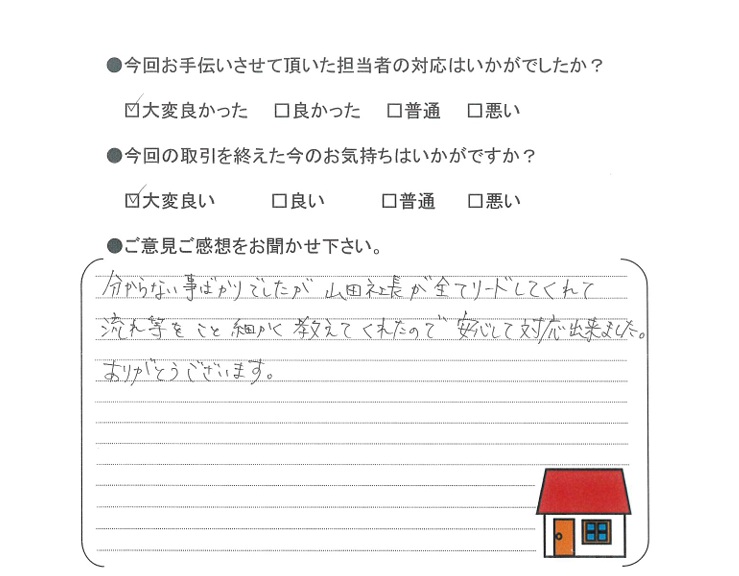 ●今回お手伝いさせて頂いた担当者の対応はいかがでしたか？
☑大変良かった　□良かった　□普通　□悪い
●今回の取引を終えた今のお気持ちはいかがですか？
☑大変良い　□良い　□普通　□悪い
●ご意見ご感想をお聞かせ下さい。
分からない事ばかりでしたが 山田社長が全てリードしてくれて
流れ等をこと細かく教えてくれたので安心して対応出来ました。
ありがとうございます。